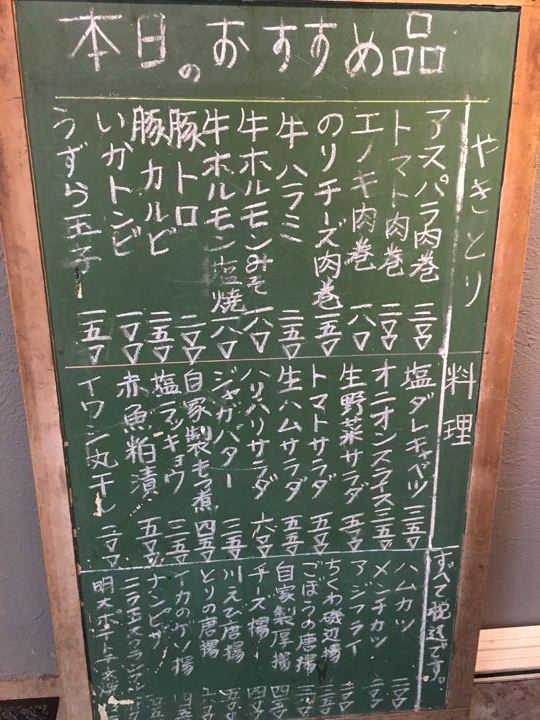 本日のおすすめ品
やきとり
アスパラ肉巻 二〇〇
トマト肉巻 二〇〇
エノキ肉巻 一八〇
のりチーズ肉巻 一五〇
牛ハラミ 二五〇
牛ホルモンみそ 一八〇
牛ホルモン塩焼 一八〇
豚トロ 二〇〇
豚カルビ 二五〇
いかトンビ 一〇〇
うずら玉子 一五〇
料理
塩ダレキャベツ 三五〇
オニオンスライス 三五〇
生野菜サラダ 五五〇
トマトサラダ 五五〇
生ハムサラダ 五五〇
ハリハリサラダ 六〇〇
ジャガバター 三五〇
自家製もつ煮 四五〇
塩ラッキョウ 二五〇
赤魚粕漬 五五〇
イワシ丸干し 二〇〇
すべて税込です。
ハムカツ
メンチカツ
アジフライ
ちくわ磯辺揚
ごぼうの唐揚
自家製厚揚
チーズ揚
川えび唐揚
とりの唐揚
イカのゲソ揚
ナンピザ